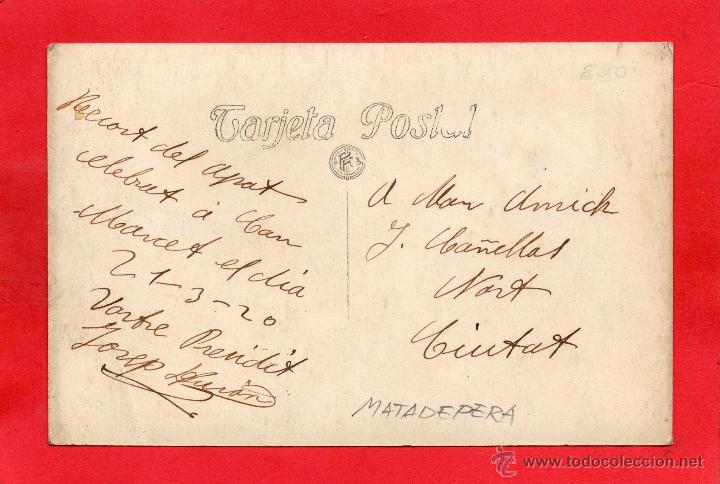 230
Tarjeta Postal
Recort del apat
celebrat á Can
Marcet el dia
21-3-20
Vostre
Josep
A Mon Amich
J. Cañellas
Nort
Ciutat
MATADEPERA
www.todocoleccion.net